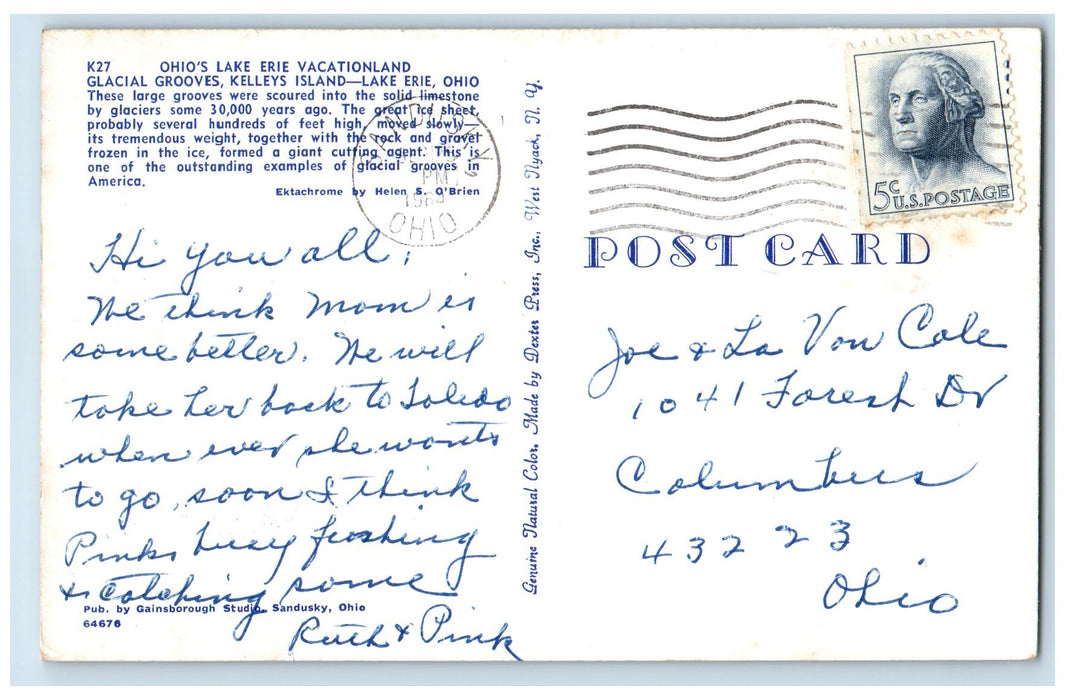 K27 OHIO'S LAKE ERIE VACATIONLAND
GLACIAL GROOVES, KELLEYS ISLAND—LAKE ERIE, OHIO
These large grooves were scoured into the solid limestone
by glaciers some 30,000 years ago. The great ice sheet,
probably several hundreds of feet high, moved slowly—
its tremendous weight, together with the rock and gravel
frozen in the ice, formed a giant cutting agent. This is
one of the outstanding examples of glacial grooves in
America.
Ektachrome by Helen S. O'Brien
PM
OHIO
Hi you all;
We think Mom is
some better. We will
take her back to Toledo
when ever she wants
to go, soon I think
Pinks busy fishing
& catching some
Ruth & Pink
Pub. by Gainsborough Studio, Sandusky, Ohio
64676
Genuine Natural Color. Made by Dexter Press, Inc., West Nyack, N. Y.
5c
U.S. POSTAGE
POST CARD
Joe & La Von Cole
1041 Forest Dr
Columbus
43223
Ohio